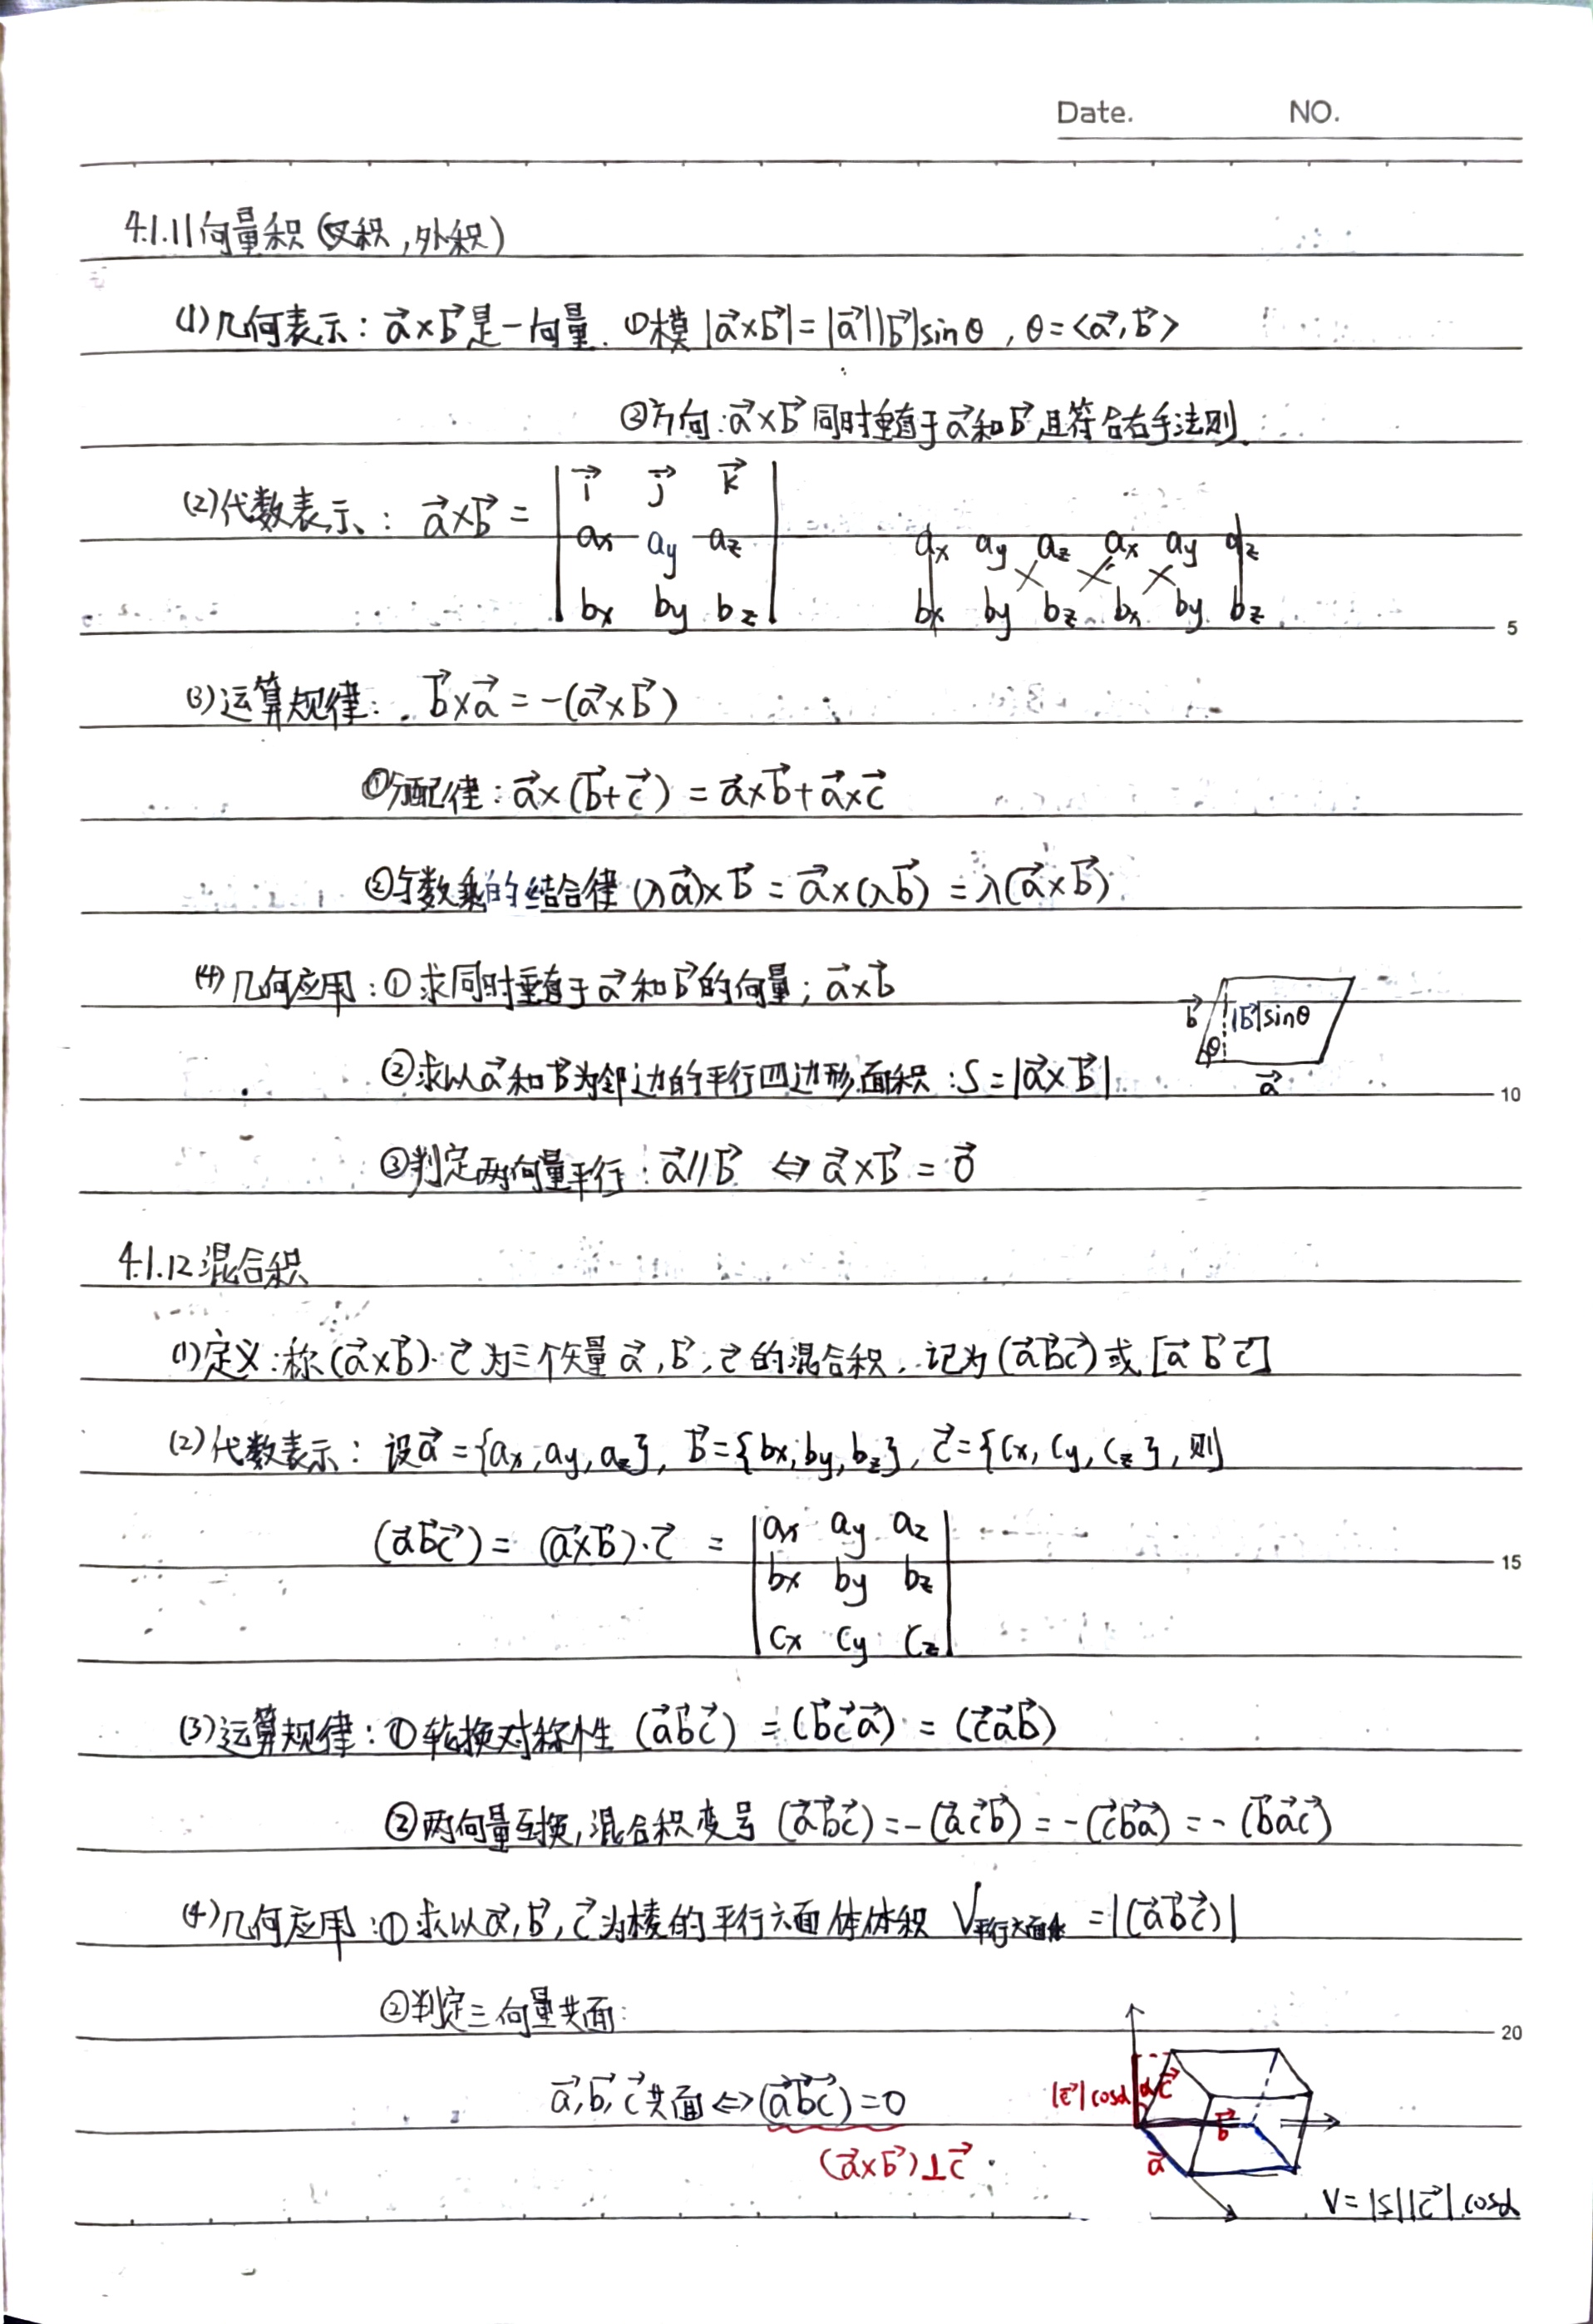 Date. NO.
4.1.11 向量积 (叉积,外积)
(1) 几何表示: a⃗×b⃗ 是一向量. ①模 |a⃗×b⃗|=|a⃗||b⃗|sinθ , θ=<a⃗,b⃗>
②方向: a⃗×b⃗ 同时垂直于a⃗和b⃗,且符合右手法则.
(2) 代数表示: a⃗×b⃗ = | i⃗ j⃗ k⃗ |
ax ay az ax ay az ax ay az
bx by bz bx by bz bx by bz
5
(3) 运算规律: b⃗×a⃗ = -(a⃗×b⃗)
①分配律: a⃗×(b⃗+c⃗) = a⃗×b⃗+a⃗×c⃗
②与数乘的结合律 (λa⃗)×b⃗ = a⃗×(λb⃗) = λ(a⃗×b⃗)
(4) 几何应用: ①求同时垂直于a⃗和b⃗的向量; a⃗×b⃗
b⃗ |b⃗|sinθ
θ
②求以a⃗和b⃗为邻边的平行四边形面积: S=|a⃗×b⃗|
a⃗
10
③判定两向量平行: a⃗//b⃗ ⇔ a⃗×b⃗ = 0⃗
4.1.12 混合积
(1) 定义: 称(a⃗×b⃗)·c⃗ 为三个矢量 a⃗,b⃗,c⃗ 的混合积, 记为 (a⃗b⃗c⃗) 或 [a⃗ b⃗ c⃗]
(2) 代数表示: 设a⃗={ax,ay,az}, b⃗={bx,by,bz}, c⃗={cx,cy,cz}, 则
(a⃗b⃗c⃗) = (a⃗×b⃗)·c⃗ = | ax ay az |
bx by bz
15
cx cy cz
(3) 运算规律: ①轮换对称性 (a⃗b⃗c⃗) = (b⃗c⃗a⃗) = (c⃗a⃗b⃗)
②两向量互换,混合积变号 (a⃗b⃗c⃗)=-(a⃗c⃗b⃗)=-(c⃗b⃗a⃗)=-(b⃗a⃗c⃗)
(4) 几何应用: ①求以a⃗,b⃗,c⃗为棱的平行六面体体积 V平行六面体 =|(a⃗b⃗c⃗)|
②判定三向量共面:
20
a⃗,b⃗,c⃗共面⇔(a⃗b⃗c⃗)=0
|c⃗|cosα α c⃗
b⃗
(a⃗×b⃗)⊥c⃗
a⃗
V=|S||c⃗|cosα